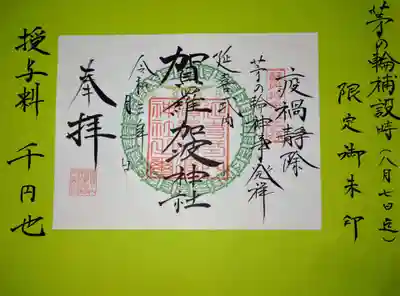 茅の輪補設時(八月七日迄)
限定御朱印
疫禍静除
茅の輪神事発祥
延喜式内
賀羅加波神社
令和三年 月 日
奉拝
授与料 千円也